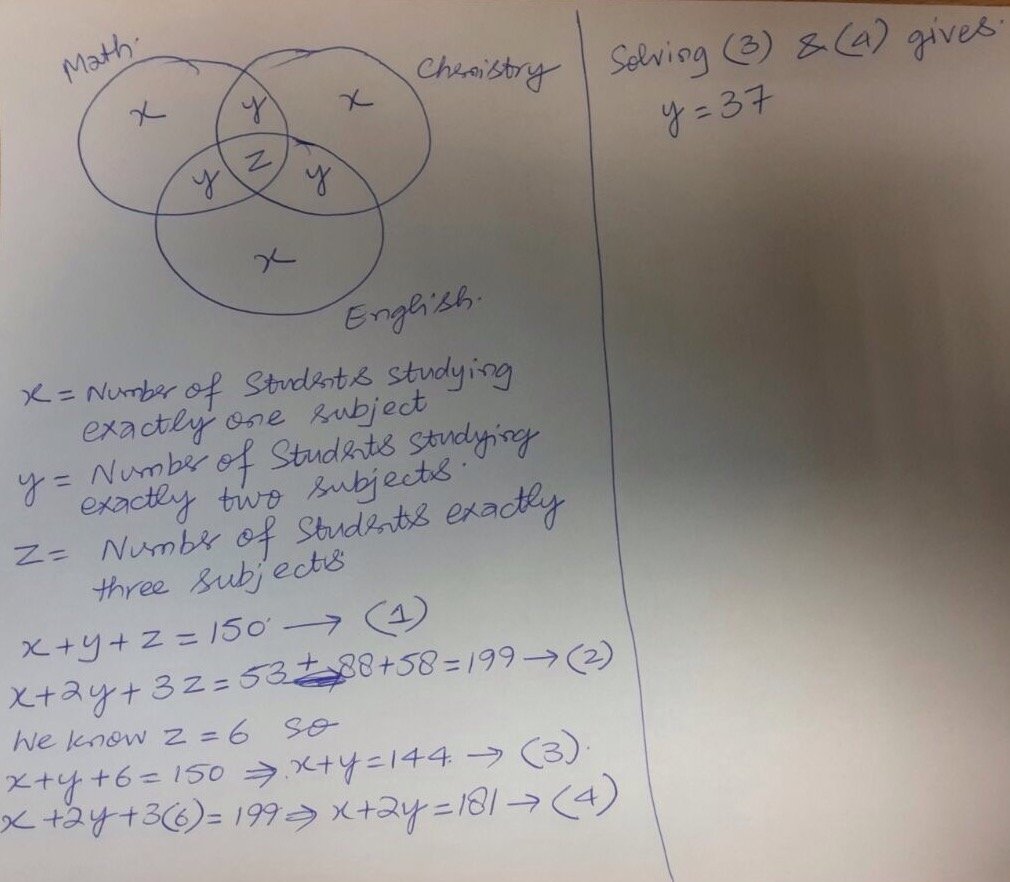 Math.
Chemistry
x
y
x
z
y
y
x
English.
x = Number of Students studying
exactly one subject
y = Number of Students studying
exactly two subjects.
z = Number of Students exactly
three subjects
x+y+z = 150 → (1)
x+2y+3z = 53 + 88+58 = 199 → (2)
We know z = 6 so
x+y+6 = 150 ⇒ x+y = 144. → (3).
x+2y+3(6) = 199 ⇒ x+2y = 181 → (4)
Solving (3) & (4) gives.
y = 37